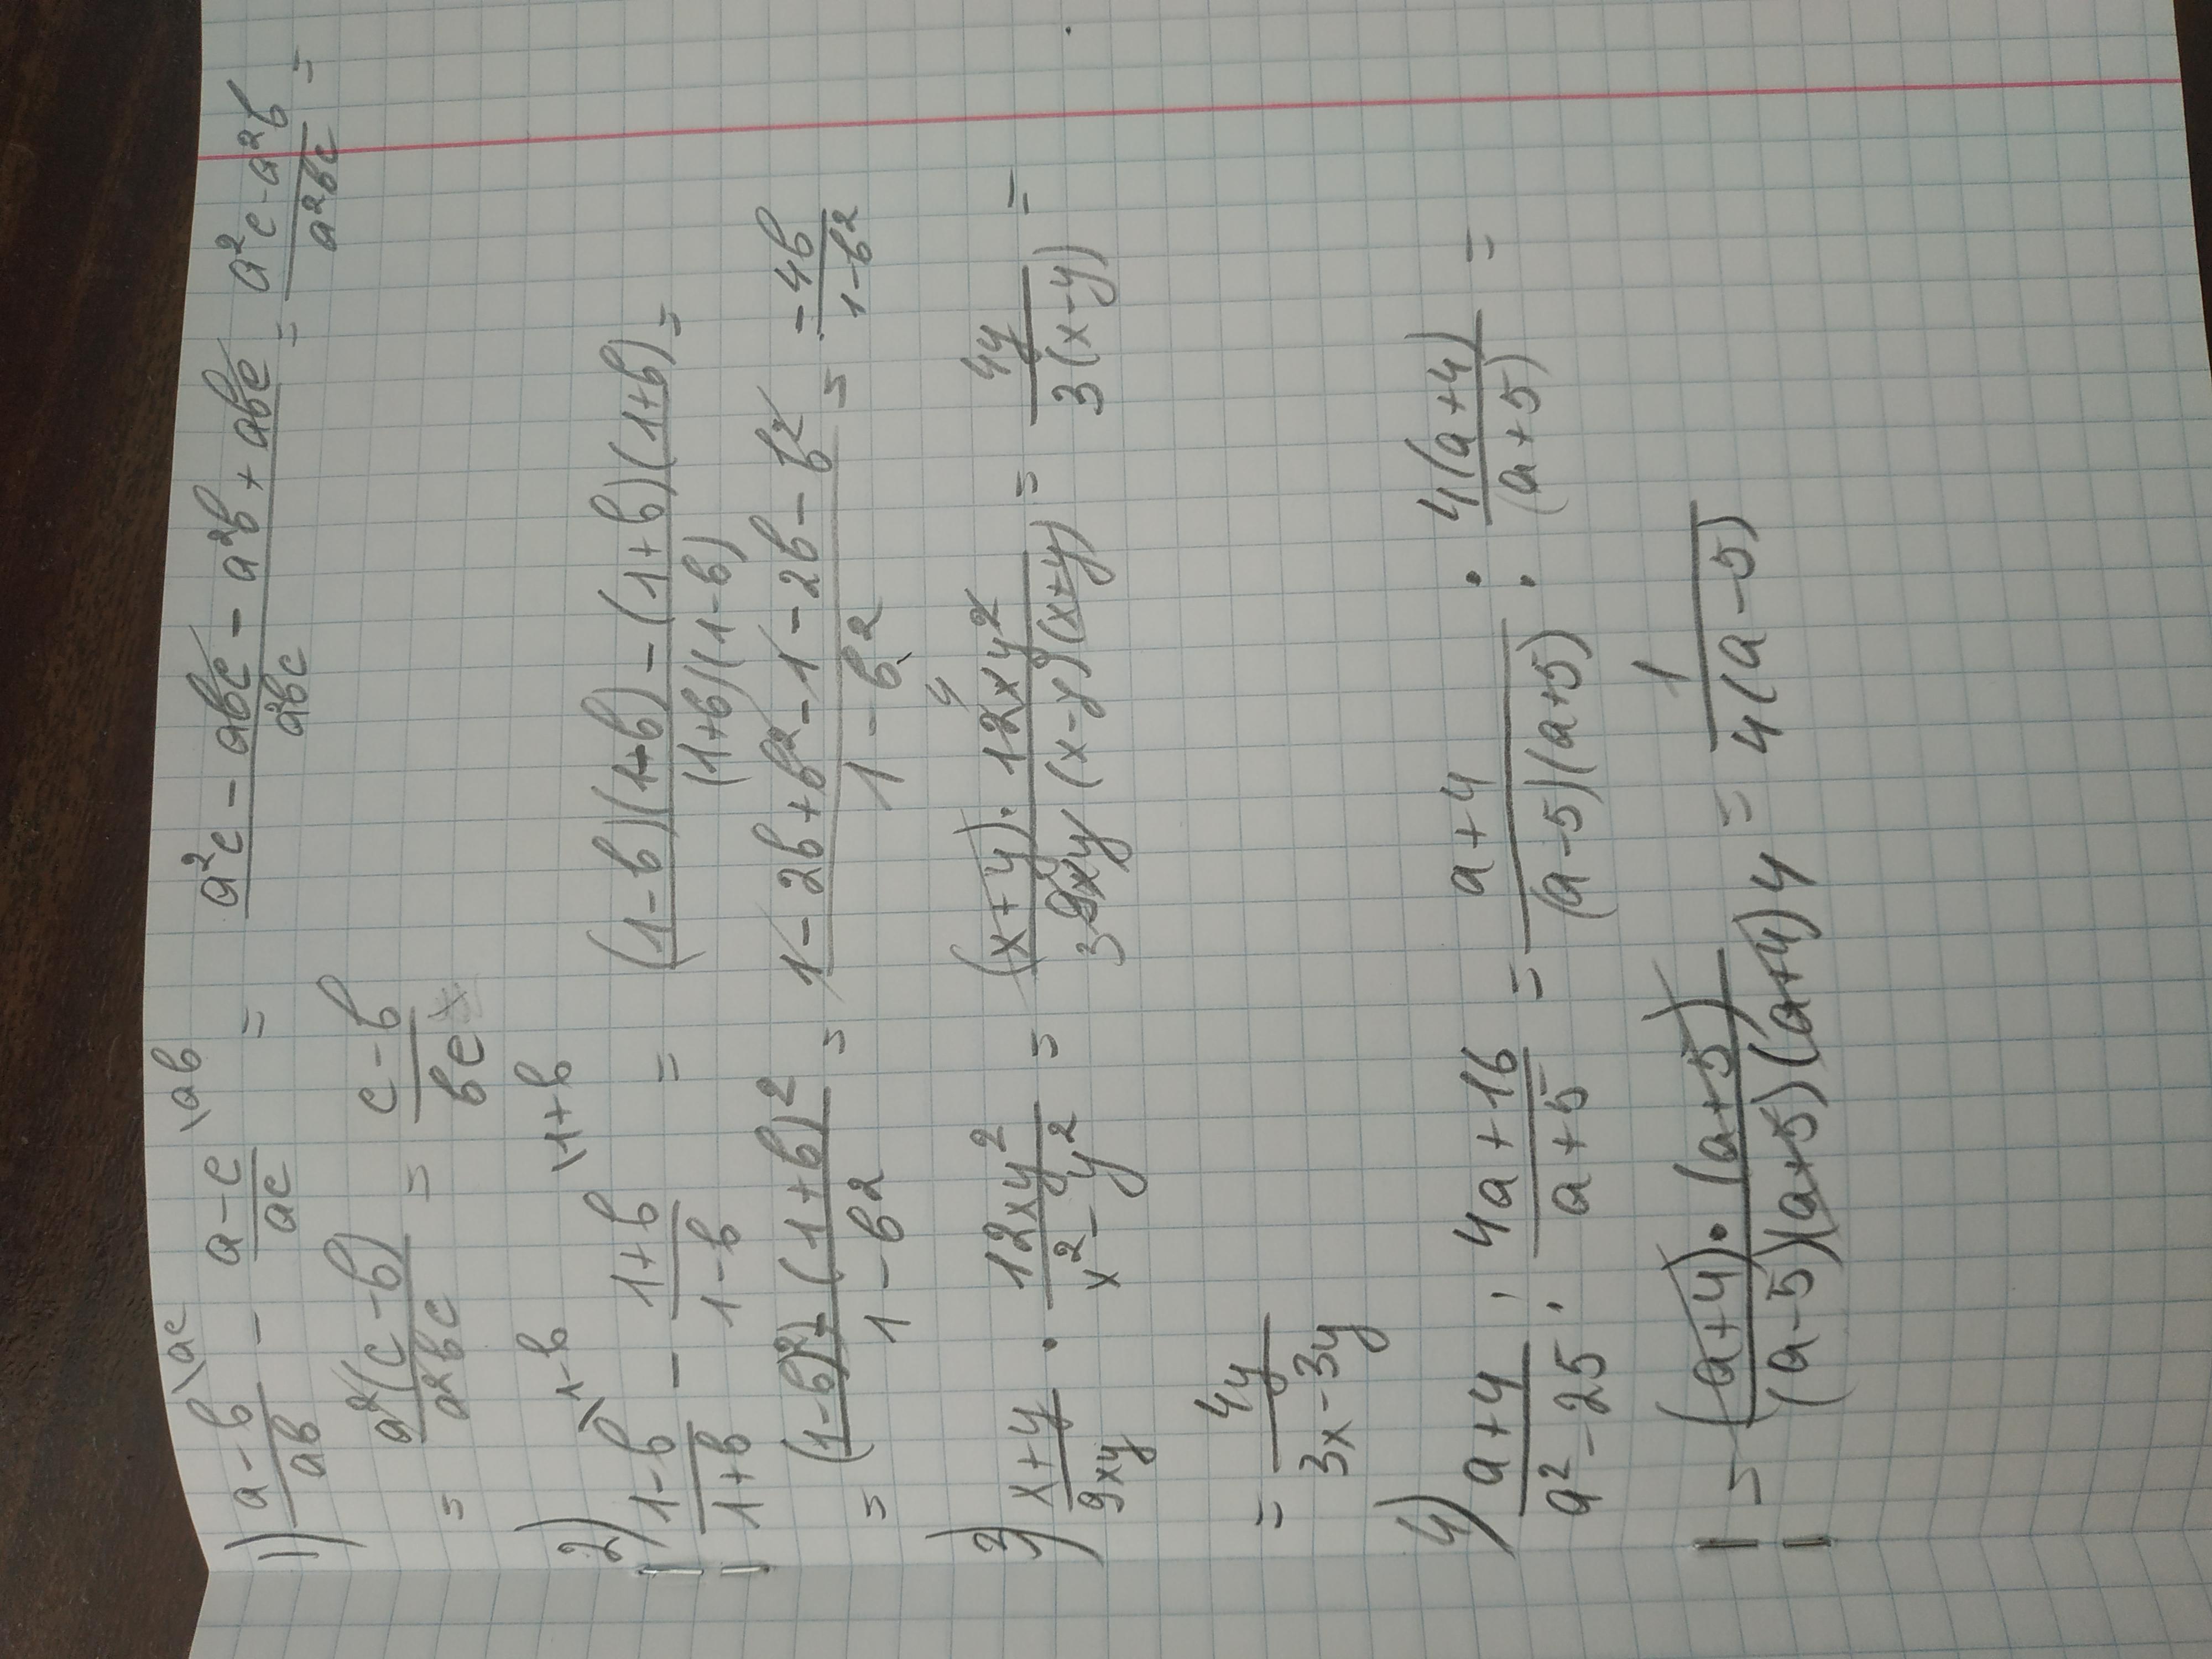 1) (a-b)/(ab) \ac - (a-c)/(ac) \ab = (a²c - abc - a²b + abc)/(a²bc) = (a²c - a²b)/(a²bc) =
= a²(c-b)/(a²bc) = (c-b)/(bc)
2) (1-b)/(1+b) \1-b - (1+b)/(1-b) \1+b = ((1-b)(1-b) - (1+b)(1+b))/((1+b)(1-b)) =
= ((1-b)² - (1+b)²)/(1-b²) = (1-2b+b²-1-2b-b²)/(1-b²) = (-4b)/(1-b²)
3) (x+y)/(9xy) · (12xy²)/(x²-y²) = ((x+y) · 12xy² 4)/(3 9xy (x-y)(x+y)) = 4y/(3(x-y)) =
= 4y/(3x-3y)
4) (a+4)/(a²-25) : (4a+16)/(a+5) = (a+4)/((a-5)(a+5)) : 4(a+4)/(a+5) =
= ((a+4) · (a+5))/((a-5)(a+5)(a+4)4) = 1/(4(a-5))